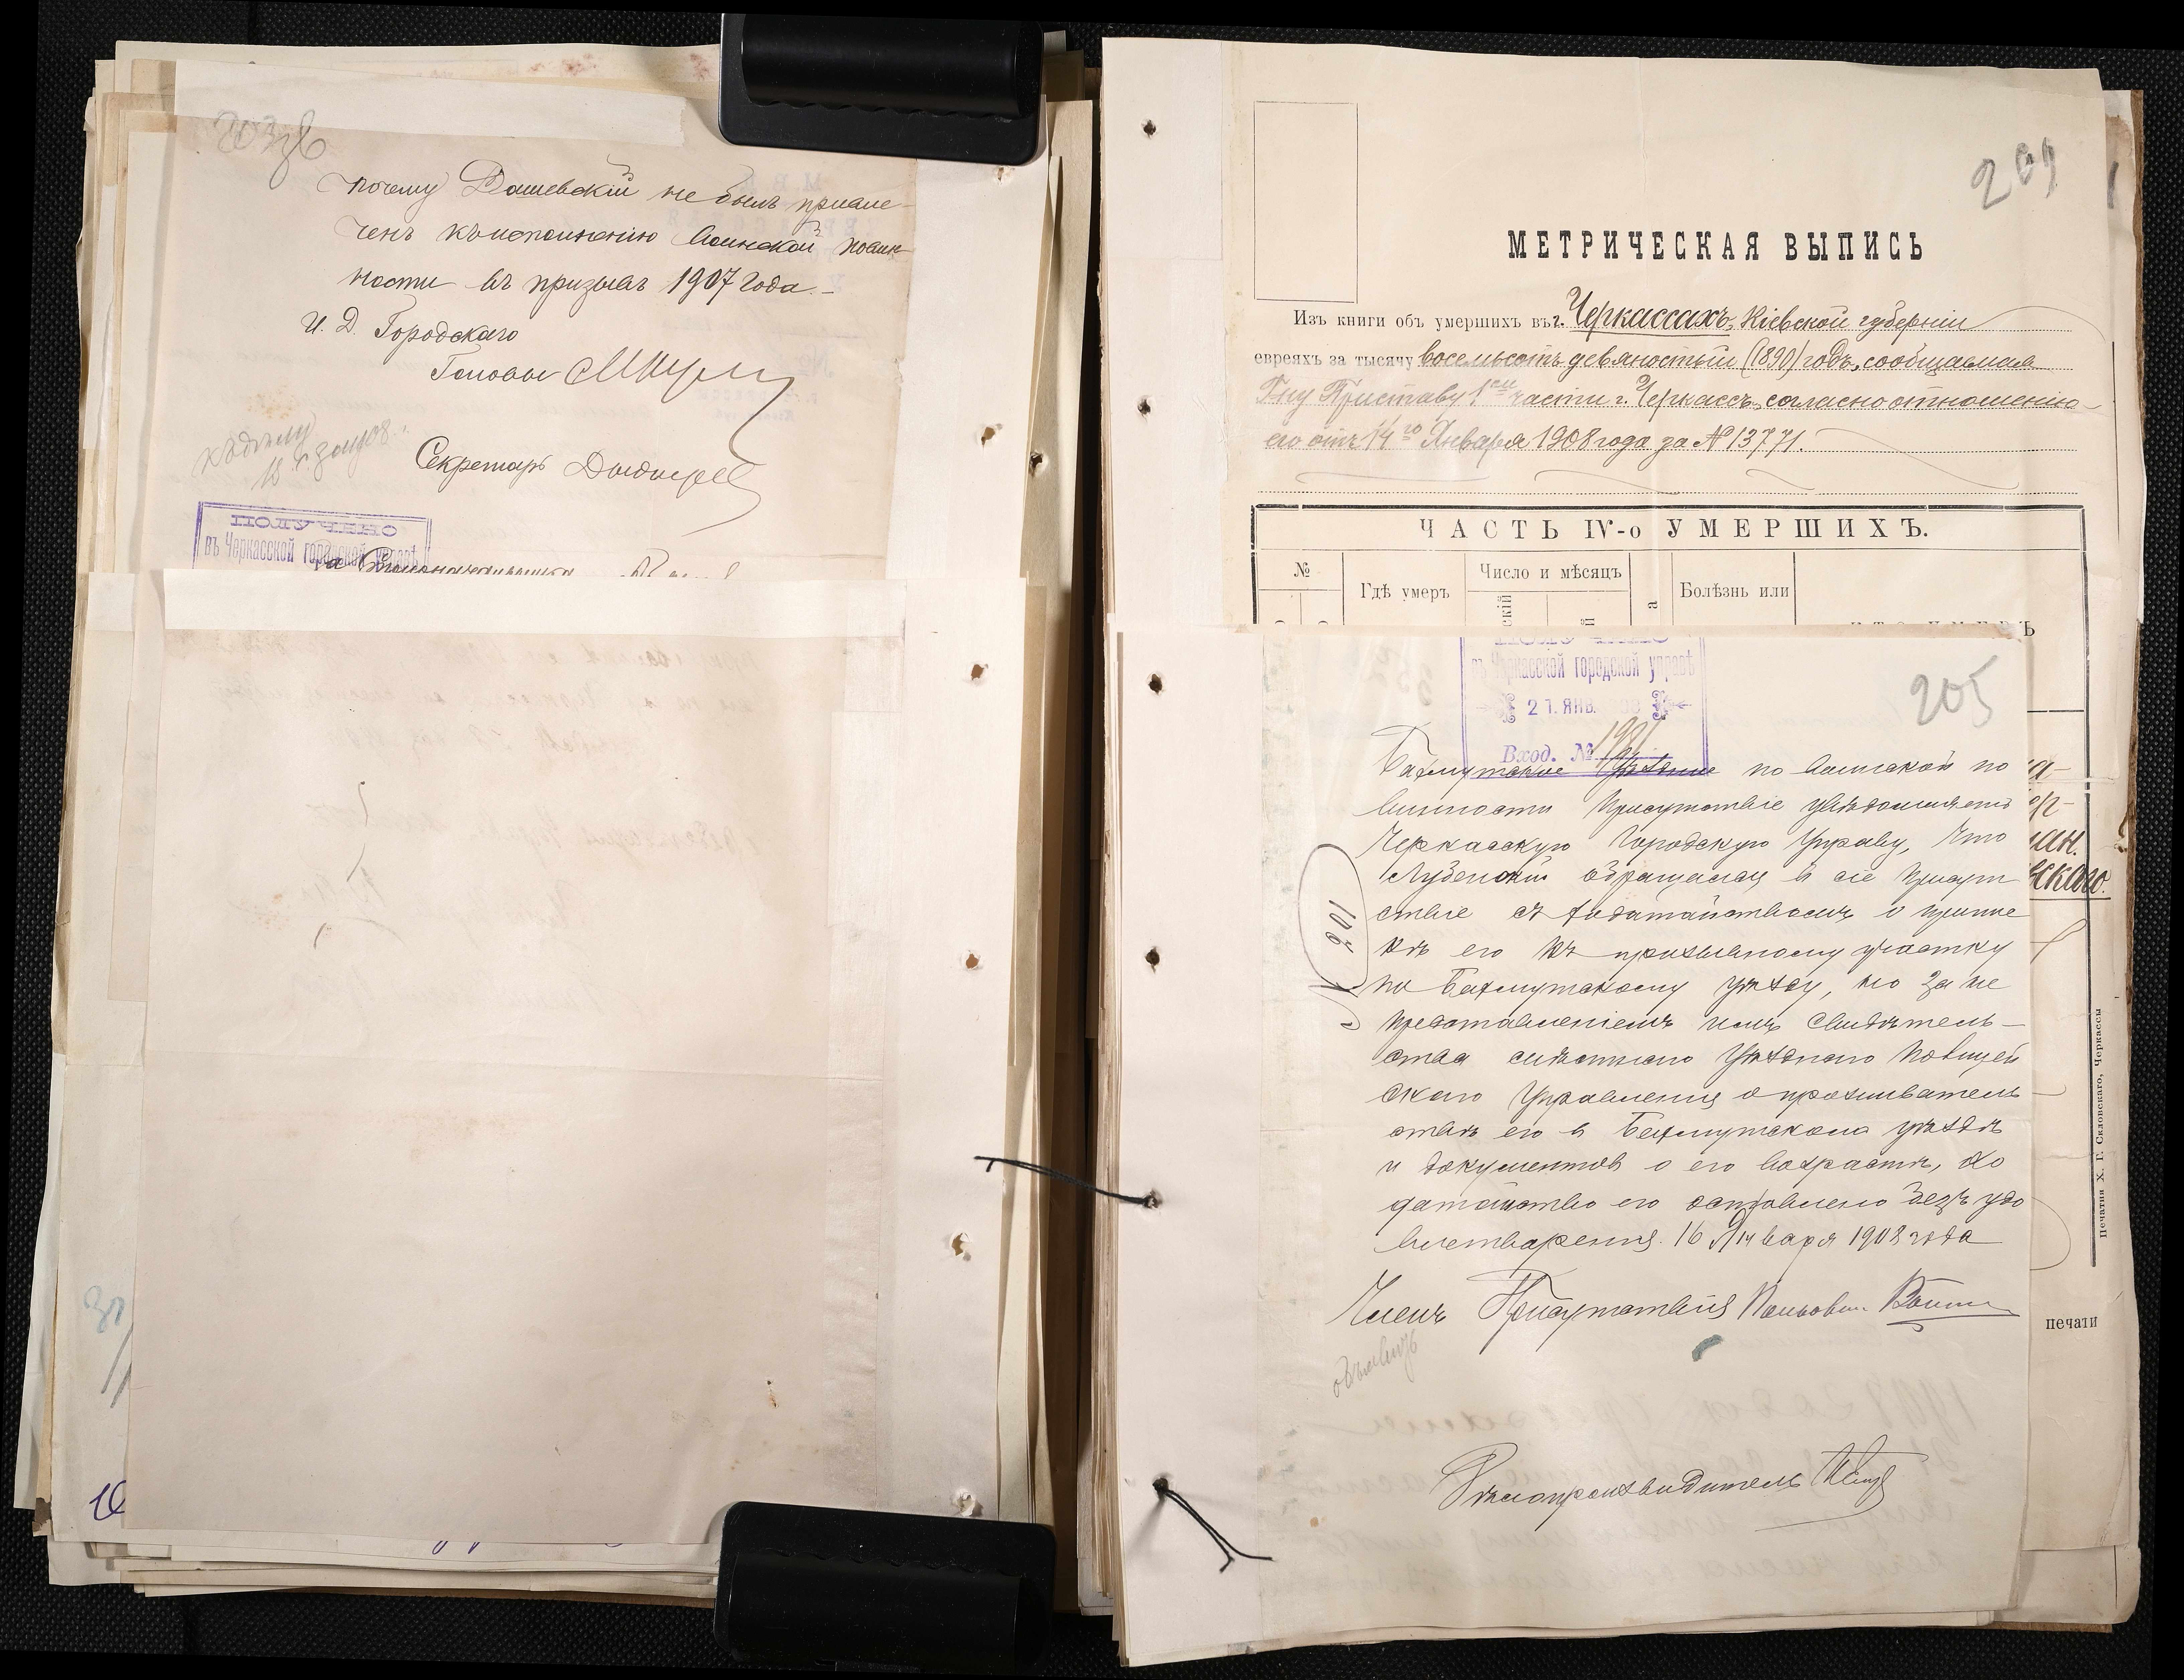 203 об
почему Дашевскій не былъ привле-
ченъ къ исполненію воинской повин-
ности въ призывъ 1907 года.-
И. Д. Городского
Головы
къ дѣлу
Секретарь
ПОЛУЧЕНО
въ Черкасской городской управѣ
209
МЕТРИЧЕСКАЯ ВЫПИСЬ
Изъ книги объ умершихъ въ г. Черкассахъ, Кіевской губерніи
евреяхъ за тысячу восемьсотъ девяностый (1890) годъ, сообщаемая
Г-ну Приставу 1-ой части г. Черкассъ, согласно отношенію
его отъ 14го Января 1908 года за № 13771.
ЧАСТЬ IV-о УМЕРШИХЪ.
№
Гдѣ умеръ
Число и мѣсяцъ
Болѣзнь или
въ Черкасской городской управѣ
21. ЯНВ.
Вход. №
205
Бахмутское Уѣздное по воинской по
винности Присутствіе увѣдомляетъ
Черкасскую Городскую Управу, что
Лубенскій обращался в сіе Присут
ствіе съ ходатайствомъ о припис
кѣ его къ призывному участку
по Бахмутскому уѣзду, но за не
представленіемъ имъ свидѣтель-
ства мѣстнаго Уѣзднаго Полицей
скаго Управленія о проживатель-
ствѣ его в Бахмутском уѣздѣ
и документов о его возрастѣ, хо
датайство его оставлено безъ удо
влетворенія. 16 Января 1908 года
Членъ Присутствія
объявить
Дѣлопроизводитель
№ 107
скаго.
печати
Печатня Х. Г. Скловскаго, Черкассы